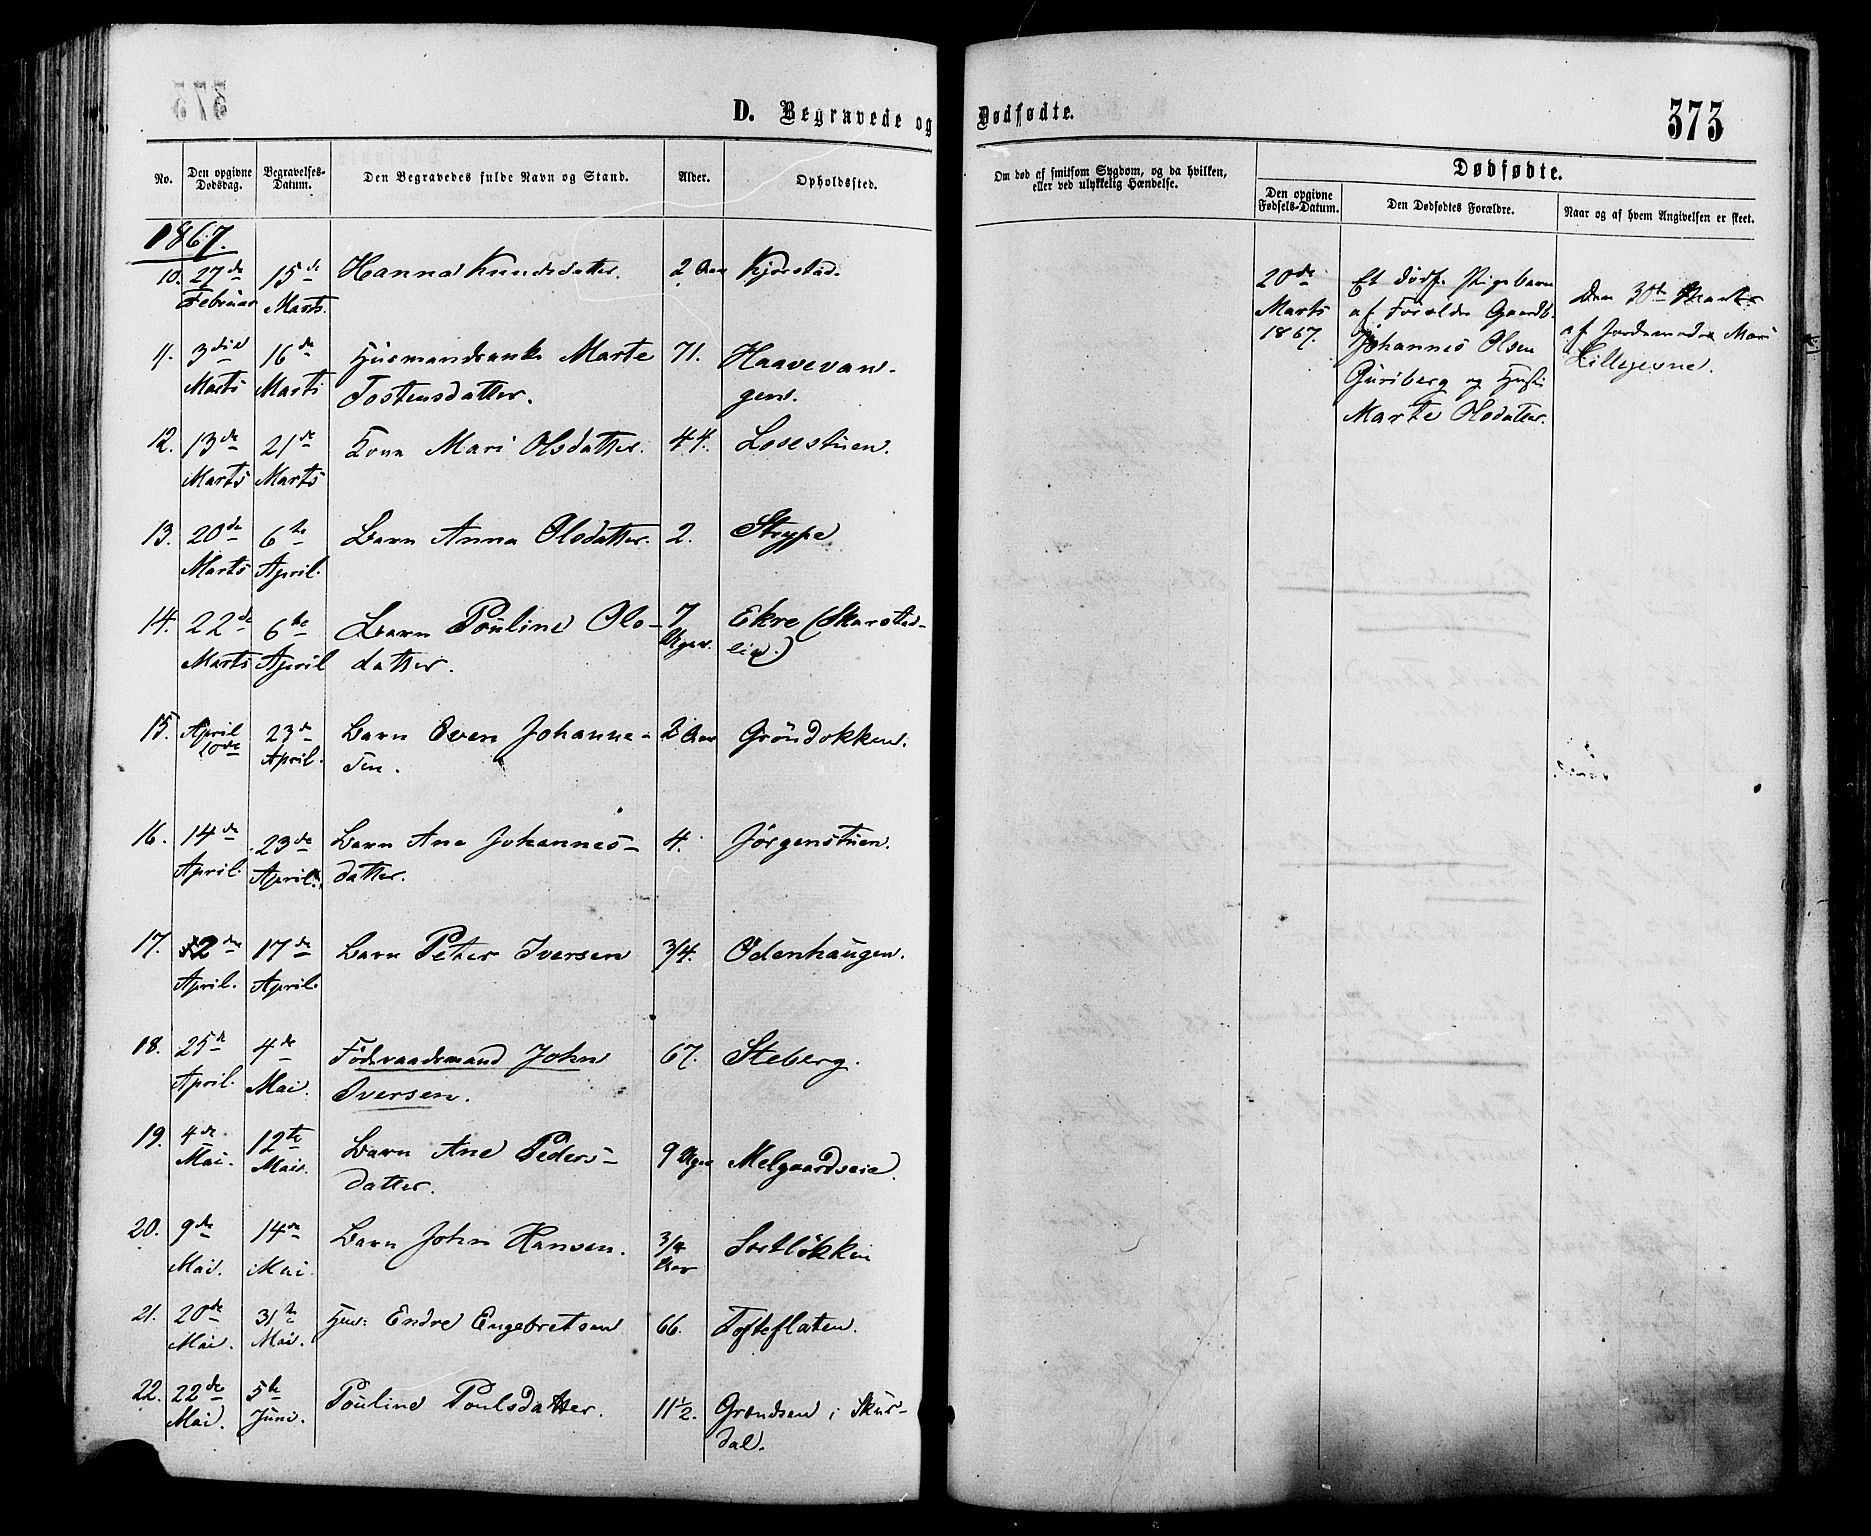 373
D. Begravede og Dødfødte.
No.
Den opgivne Dødsdag.
Begravelses-Datum.
Den Begravedes fulde Navn og Stand.
Alder.
Opholdssted.
Om død af smitsom Sygdom, og da hvilken,
eller ved ulykkelig Hændelse.
Dødfødte.
Den opgivne Fødsels-Datum.
Den Dødfødtes Forældre.
Naar og af hvem Angivelsen er skeet.
1867.
10. 27de 15de Hanna Knudsdatter. 2 Aar Kjorstad.
Februar Marts.
11. 3die 16de Husmandsenke Marte 71. Haavevan-
Marts Marts Tostensdatter. gen.
12. 13de 21de Kona Mari Olsdatter. 44. Losestuen.
Marts Marts
13. 20de 6te Barn Anna Olsdatter. 2. Strype
Marts April.
14. 22de 6te Barn Pouline Ols- 7 Ekre (Skarstad-
Marts April datter. Uger. lia.)
15. April 23de Barn Even Johanne- 2 Aar Gröndokken.
10de April. sen.
16. 14de 23de Barn Ane Johannes- 4. Jörgenstuen.
April. April. datter.
17. 2den 17de Barn Peter Iversen 3/4. Odenhaugen.
April. April.
18. 25de 4de Föderaadsmand John 67. Steberg.
April. Mai. Iversen.
19. 4de 12te Barn Ane Peders- 9 Uger Melgaardseie.
Mai. Mai. datter.
20. 9de 14de Barn John Hansen. 3/4 Sortlökken
Mai. Mai. Aar
21. 20de 31te Hus: Endre Engebretsen 66. Tofteflaten.
Mai. Mai.
22. 22de 5te Pouline Poulsdatter. 11 1/2. Grændsen i Skur-
Mai. Juni. dal.
20de
Marts
1867.
Et dødf. Pigebarn
af Forældre Gaardb.
Johannes Olsen
Guriberg og Hustr.
Marte Olsdatter.
Den 30te Marts
af Jordemodre Mari
Lillegjevne.